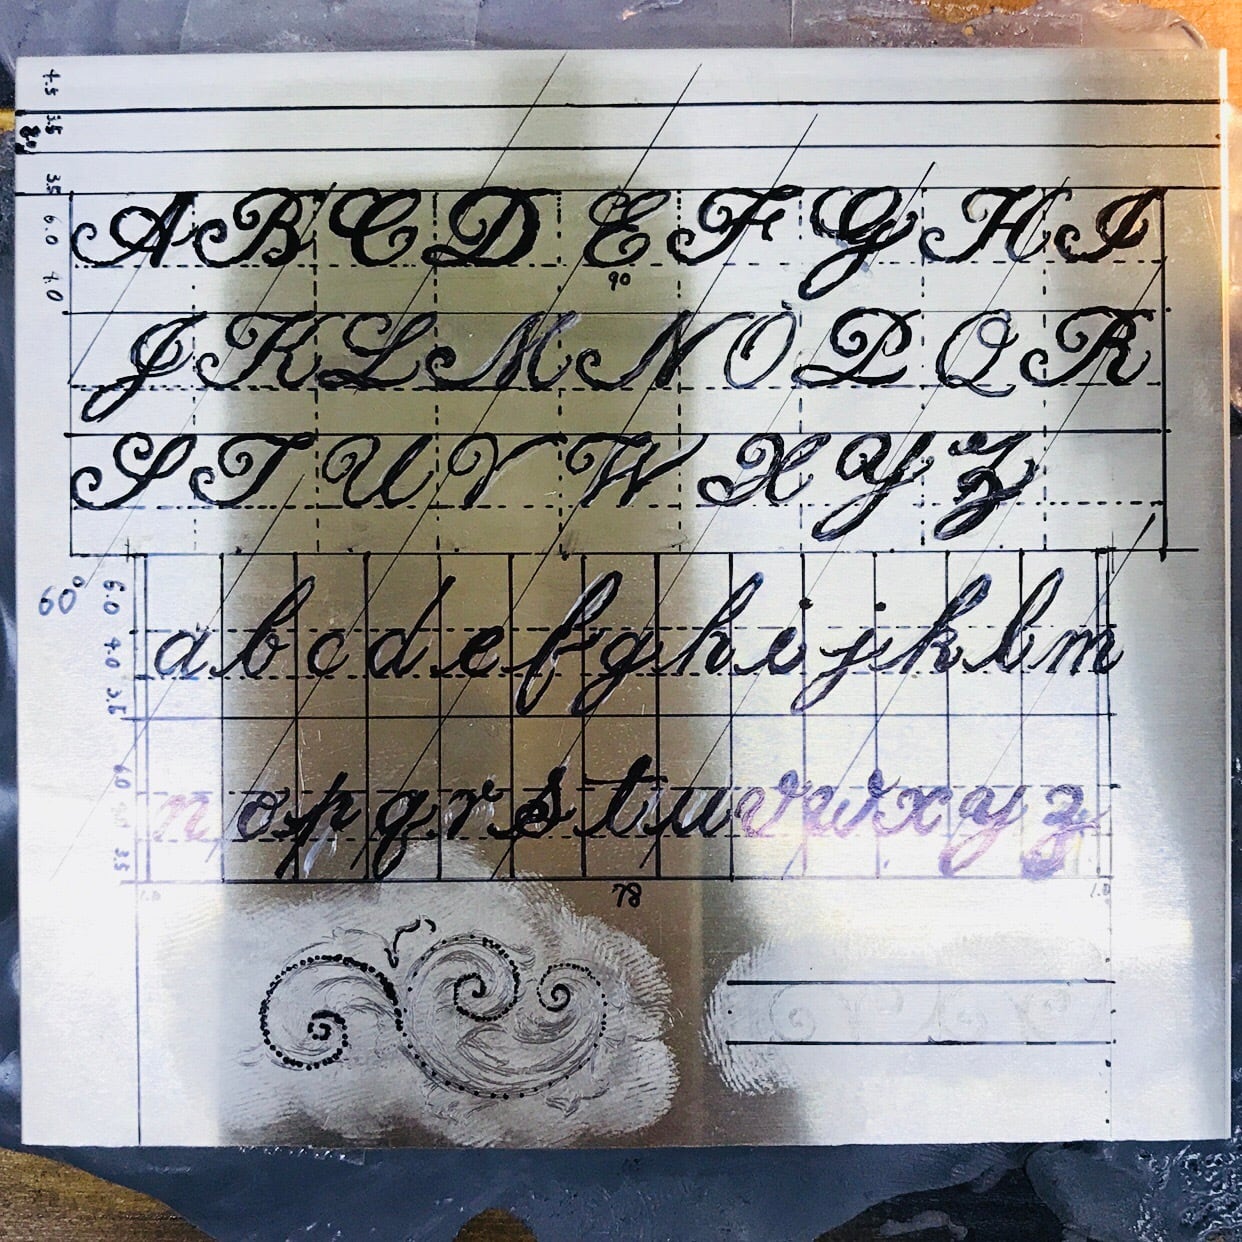 4.5
3.5
3.5
6.0
4.0
A B C D E F G H I
90
J K L M N O P Q R
S T U V W X Y Z
60°
6.0
4.0
3.5
a b c d e f g h i j k l m
6.0
n o p q r s t u v w x y z
3.5
1.0
78
1.0